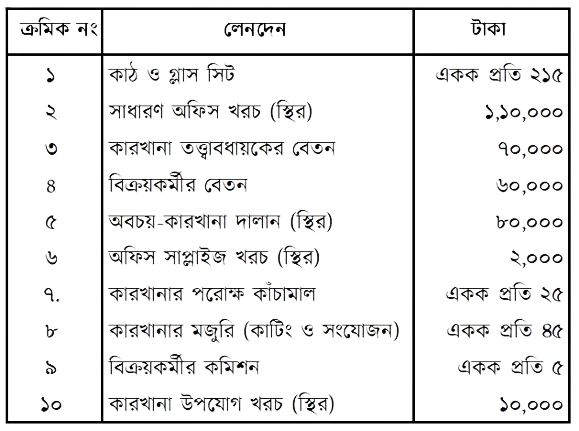 ক্রমিক নং লেনদেন টাকা
১ কাঠ ও গ্লাস সিট একক প্রতি ২১৫
২ সাধারণ অফিস খরচ (স্থির) ১,১০,০০০
৩ কারখানা তত্ত্বাবধায়কের বেতন ৭০,০০০
৪ বিক্রয়কর্মীর বেতন ৬০,০০০
৫ অবচয়-কারখানা দালান (স্থির) ৮০,০০০
৬ অফিস সাপ্লাইজ খরচ (স্থির) ২,০০০
৭. কারখানার পরোক্ষ কাঁচামাল একক প্রতি ২৫
৮ কারখানার মজুরি (কাটিং ও সংযোজন) একক প্রতি ৪৫
৯ বিক্রয়কর্মীর কমিশন একক প্রতি ৫
১০ কারখানা উপযোগ খরচ (স্থির) ১০,০০০